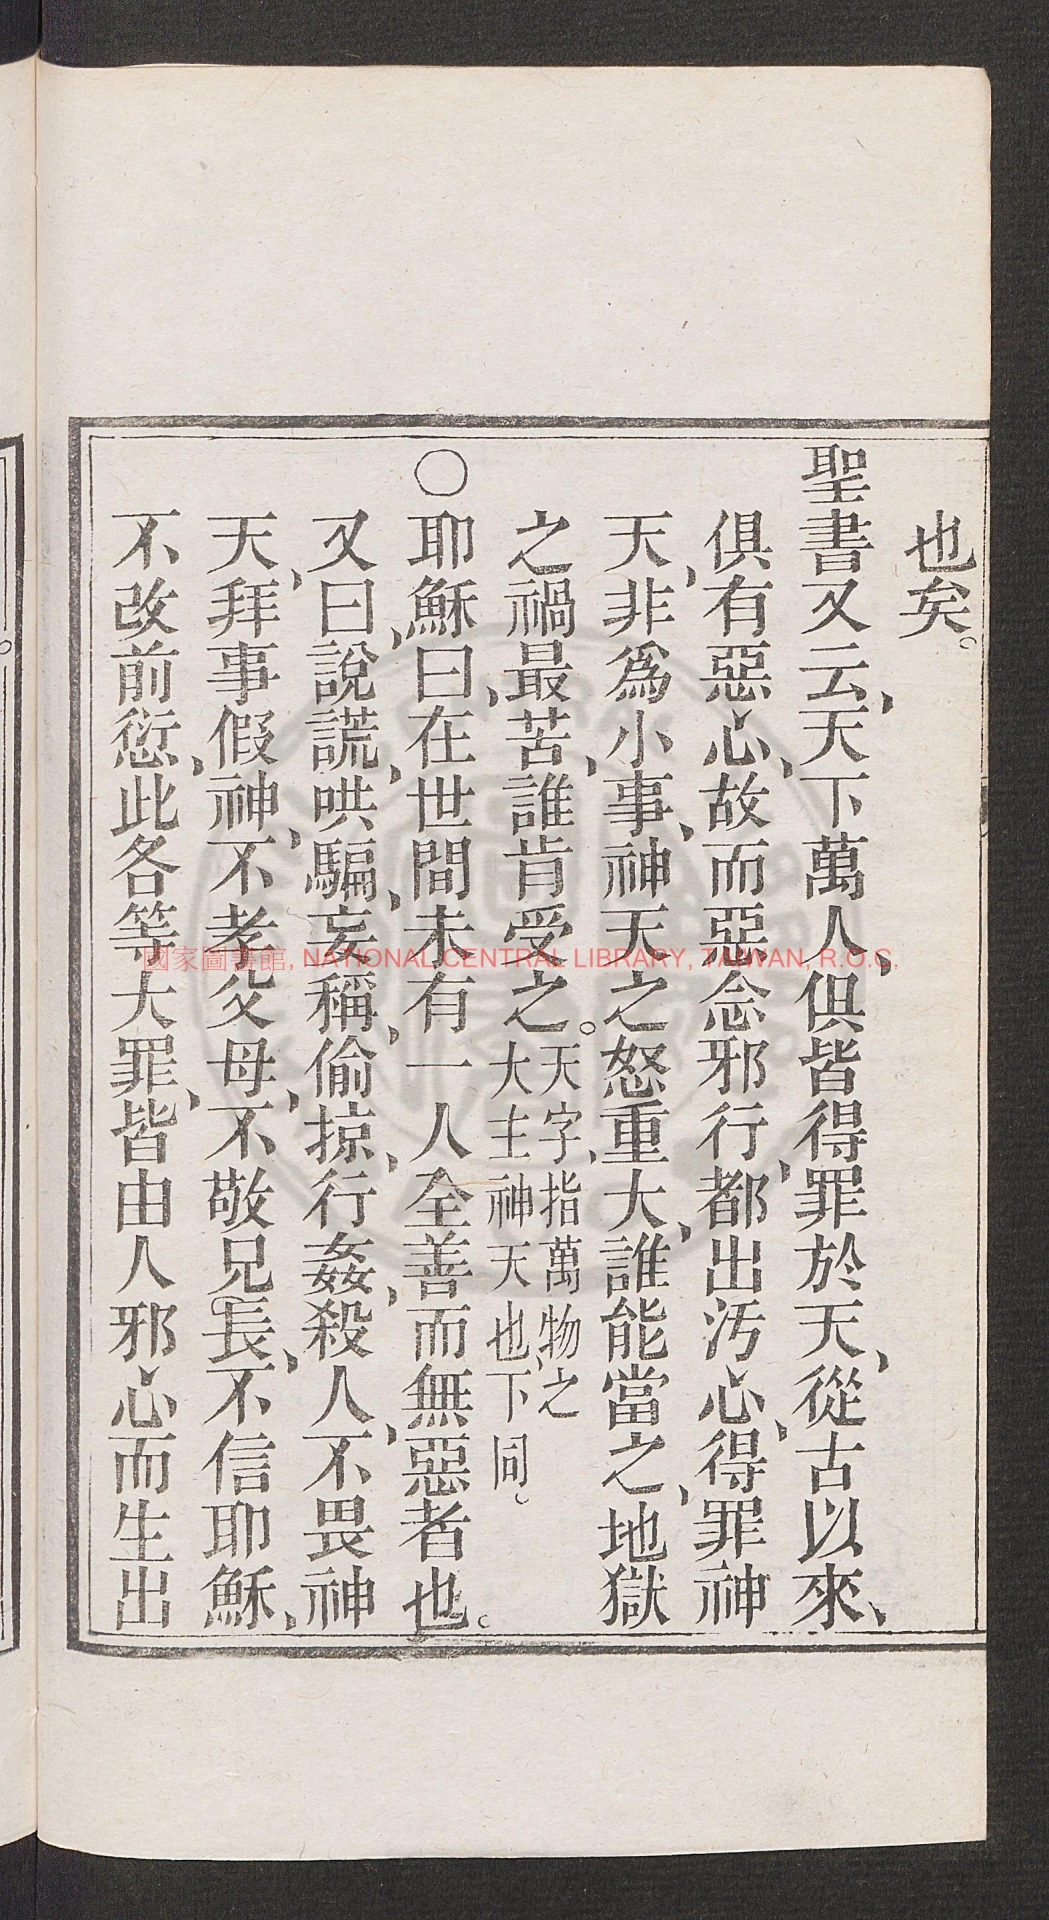 也矣。
聖書又云、天下萬人、俱皆得罪於天、從古以來、
俱有惡心、故而惡念邪行、都出汚心、得罪神
天、非爲小事、神天之怒重大、誰能當之、地獄
之禍最苦、誰肯受之。天字、指萬物之
大主神天也、下同。
〇耶穌曰、在世間未有一人全善而無惡者也。
又曰、說謊、哄騙、妄稱、偷掠、行姦、殺人、不畏神
天、拜事假神、不孝父母、不敬兄長、不信耶穌、
不改前愆、此各等大罪、皆由人邪心而生出
國家圖書館, NATIONAL CENTRAL LIBRARY, TAIWAN, R.O.C,